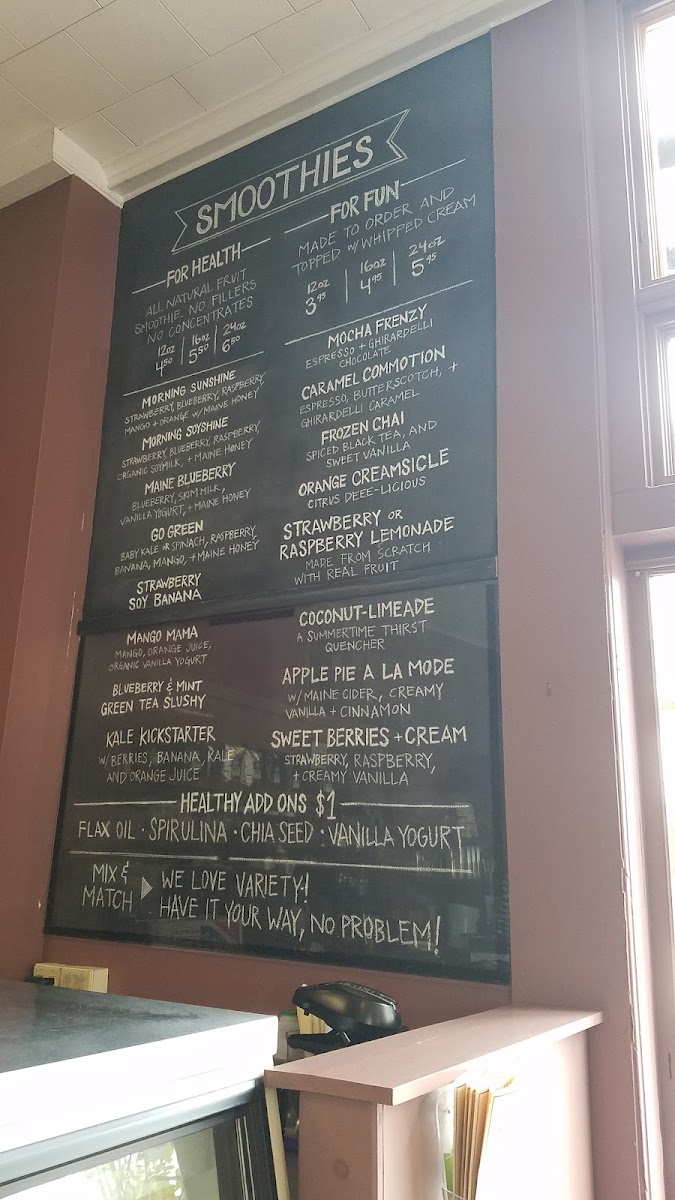 SMOOTHIES
FOR HEALTH
ALL NATURAL FRUIT
SMOOTHIE. NO FILLERS
NO CONCENTRATES
12OZ | 16OZ | 24OZ
4.50 | 5.50 | 6.50
MORNING SUNSHINE
STRAWBERRY, BLUEBERRY, RASPBERRY,
MANGO + ORANGE W/ MAINE HONEY
MORNING SOYSHINE
STRAWBERRY, BLUEBERRY, RASPBERRY,
ORGANIC SOYMILK, + MAINE HONEY
MAINE BLUEBERRY
BLUEBERRY, SKIM MILK,
VANILLA YOGURT, + MAINE HONEY
GO GREEN
BABY KALE OR SPINACH, RASPBERRY,
BANANA, MANGO, + MAINE HONEY
STRAWBERRY
SOY BANANA
MANGO MAMA
MANGO, ORANGE JUICE,
ORGANIC VANILLA YOGURT
BLUEBERRY & MINT
GREEN TEA SLUSHY
KALE KICKSTARTER
W/ BERRIES, BANANA, KALE
AND ORANGE JUICE
FOR FUN
MADE TO ORDER AND
TOPPED W/ WHIPPED CREAM
12OZ | 16OZ | 24OZ
3.95 | 4.95 | 5.95
MOCHA FRENZY
ESPRESSO + GHIRARDELLI
CHOCOLATE
CARAMEL COMMOTION
ESPRESSO, BUTTERSCOTCH, +
GHIRARDELLI CARAMEL
FROZEN CHAI
SPICED BLACK TEA, AND
SWEET VANILLA
ORANGE CREAMSICLE
CITRUS DEEE-LICIOUS
STRAWBERRY OR
RASPBERRY LEMONADE
MADE FROM SCRATCH
WITH REAL FRUIT
COCONUT-LIMEADE
A SUMMERTIME THIRST
QUENCHER
APPLE PIE A LA MODE
W/ MAINE CIDER, CREAMY
VANILLA + CINNAMON
SWEET BERRIES + CREAM
STRAWBERRY, RASPBERRY,
+ CREAMY VANILLA
HEALTHY ADD ONS $1
FLAX OIL · SPIRULINA · CHIA SEED · VANILLA YOGURT
MIX &
MATCH
WE LOVE VARIETY!
HAVE IT YOUR WAY, NO PROBLEM!